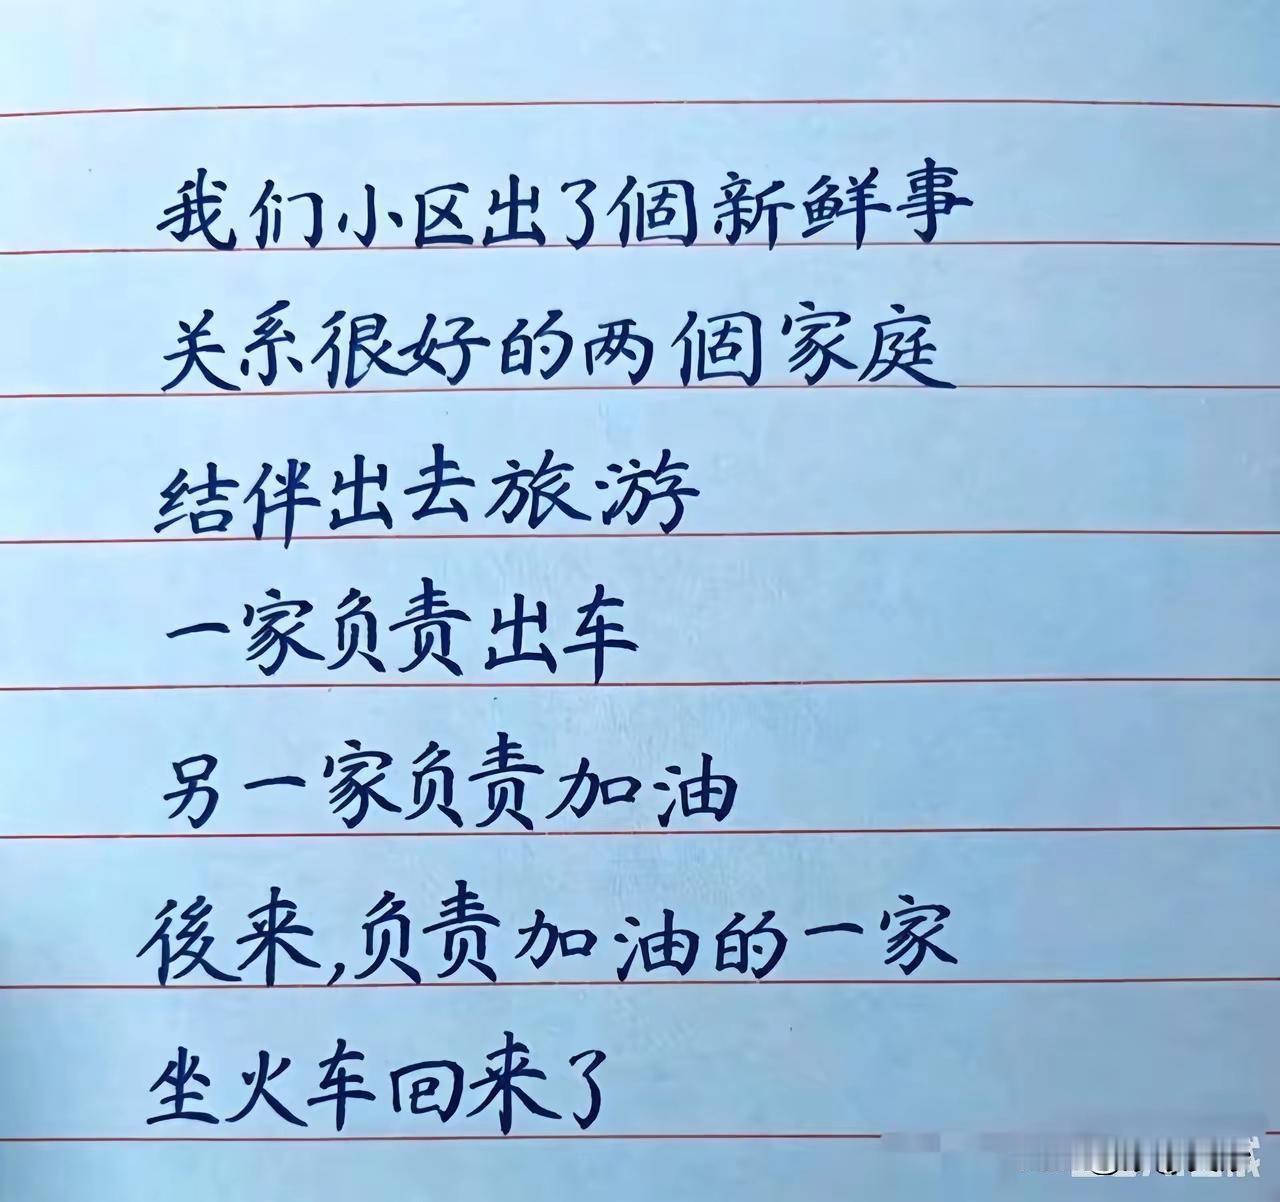 我们小区出了個新鲜事
关系很好的两個家庭
结伴出去旅游
一家负责出车
另一家负责加油
後来,负责加油的一家
坐火车回来了